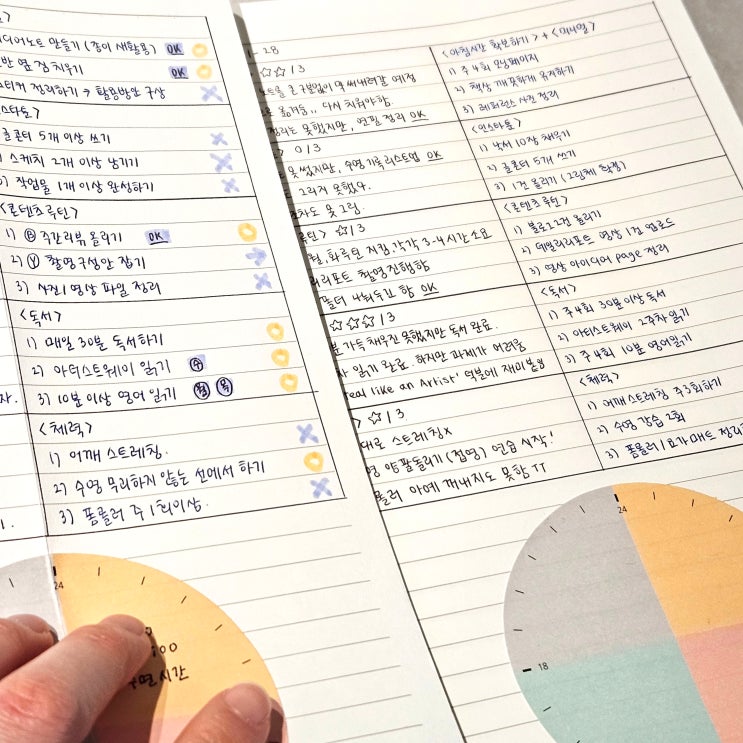 디어노트 만들기 (종이 재활용) OK
반 옆 짐 치우기 OK
스티커 정리하기 → 활용방안 구상
스타툰>
콜론터 5개 이상 쓰기
스케치 2개 이상 남기기
작업물 1개 이상 완성하기
<콘텐츠 루틴>
1) B 주간리뷰 올리기 OK
2) Y 촬영구성안 잡기
3) 사진/영상 파일 정리
<독서>
1) 매일 30분 독서하기
2) 아티스트웨이 읽기 수
3) 10분 이상 영어 읽기 월 목
<체력>
1) 어깨 스트레칭
2) 수영 무리하지 않는 선에서 하기
3) 폼롤러 주 1회이상
24
:00
수면시간
- 28
☆☆/3
예정
다시 치워야함.
정리는 못했지만, 연필 정리 OK
> 0/3
못 썼지만, 수영 기록 리스트업 OK
그리지 못했다.
못 그림.
루틴> ☆/3
월, 화 루틴 지킴. 각각 3-4시간 소요
리포트 촬영진행함
폴더 나눠두긴 함 OK
☆☆☆/3
가득 채우진 못했지만 독서 완료.
읽기 완료. 하지만 과제가 어려움
eal like an Artist' 덕분에 재미붙임
> ☆/3.
대로 스트레칭x
영 양팔돌리기 (접영) 연습 시작!
롤러 아예 꺼내지도 못함 TT
<아침시간 확보하기> + <미니멀>
1) 주 4회 모닝페이지
2) 책상 깨끗하게 유지하기
3) 레퍼런스 사진 정리
<인스타툰>
1) 낙서 10장 채우기
2) 콜론터 5개 쓰기
3) 1건 올리기 (그림체 확정)
<콘텐츠 루틴>
1) 블로그 2건 올리기
2) 데일리리포트 영상 1건 업로드
3) 영상 아이디어 page 정리
<독서>
1) 주 4회 30분 이상 독서
2) 아티스트웨이 2주차 읽기
3) 주 4회 10분 영어읽기
<체력>
1) 어깨 스트레칭 주 3회하기
2) 수영 강습 2회
3) 폼롤러/요가매트 정리
24
18